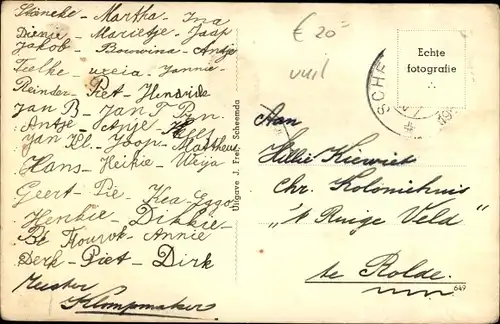 Stöncke - Martha - Ina
Dienje - Marietje - Jaap
Jakob - Bouwina - Antje
Feelke - - Jannie
Reinder - Piet - Hendrik
Jan B - Jan T
Antje - Anje
Jan Kl. - Joop - Mattheus
Hans - Heikie - Wija
Geert - Pie - Kea - Egge
Henkie - Dikkie -
Bé - Annie
Derk - Piet - Dirk
Meester Klompmaker
€ 20-
vuil
Uitgave J. Frel. Scheemda
SCHE
Echte
fotografie
Aan
Hillie Kiewiet
Chr. Koloniehuis
"'t Ruige Veld"
te Rolde.
649